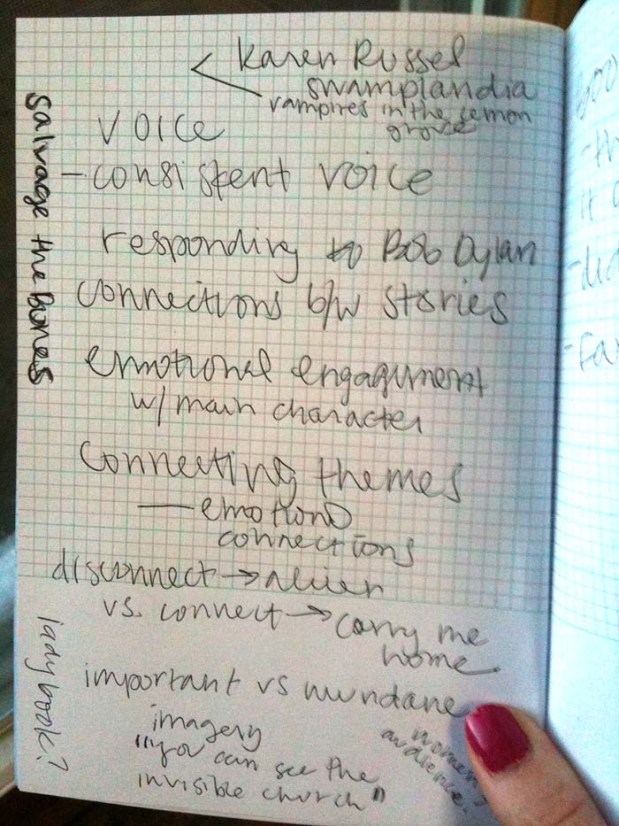 Karen Russel
swamplandia
vampires in the lemon
grove
VOICE
- consistent voice
responding to Bob Dylan
connections b/w stories
emotional engagement
w/ main character
connecting themes
— emotions
connections
disconnect → alien
vs. connect → carry me
home.
important vs mundane
imagery
"you can see the
invisible church"
women's
audience.
salvage the Bones
lady book?